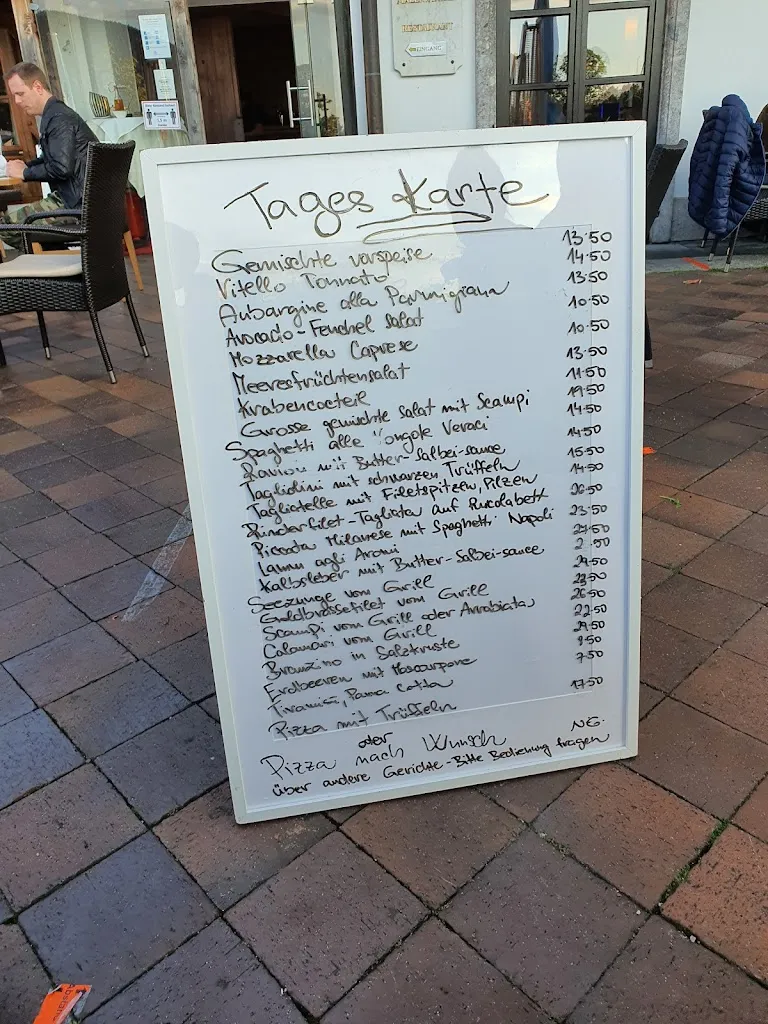 RESTAURANT
EINGANG
Tages Karte
Gemischte vorspeise 13.50
Vitello Tonnato 14.50
Aubargine alla Parmigiana 13.50
Avocado-Fenchel salat 10.50
Mozzarella Caprese 10.50
Meeresfrüchtensalat 13.50
Krabencocteil 11.50
Grosse gemischte Salat mit Scampi 19.50
Spaghetti alle Vongole Veraci 14.50
Ravioli mit Butter-Salbei-sauce 14.50
Tagliolini mit schwarzen Trüffeln 15.50
Tagliatelle mit Filetspitzeln, Pilzen 14.50
Rinderfilet-Tagliata auf Rucolabett 26.50
Piccata Milanese mit Spaghetti Napoli 23.50
Lamm agli Aromi
Kalbsleber mit Butter-Salbei-sauce
Seezunge vom Grill 29.50
Goldbrassefilet vom Grill 23.50
Scampi vom Grill oder Arrabiata 26.50
Calamari vom Grill 22.50
Branzino in Salzkruste 29.50
Erdbeeren mit Mascarpone 8.50
Tiramisù, Panna Cotta 7.50
Pizza mit Trüffeln 17.50
oder
Pizza nach Wunsch NG.
über andere Gerichte-Bitte Bedienung fragen